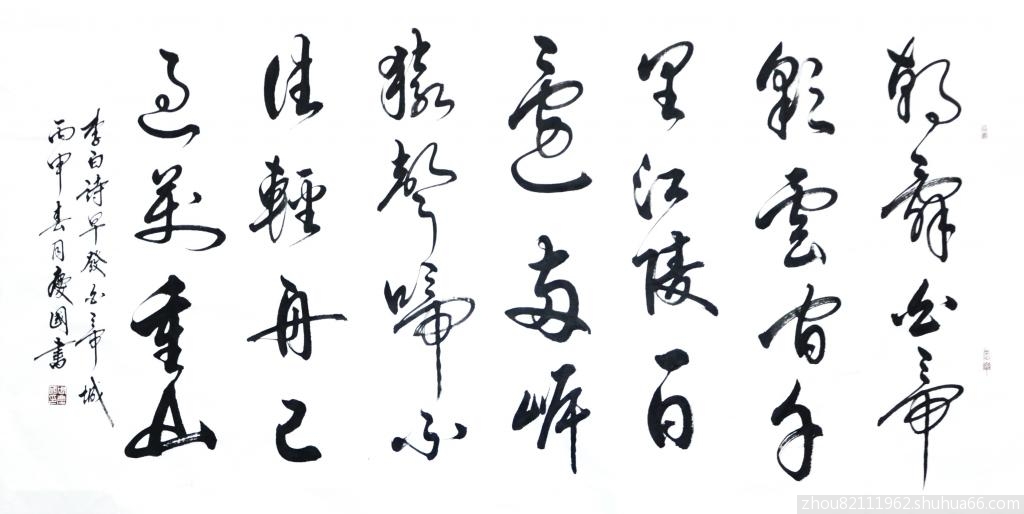 朝辭白帝
彩雲間千
里江陵一日
還兩岸
猿聲啼不
住輕舟已
過萬重山
李白詩早發白帝城
丙申春月慶國書
zhou82111962.shuhua66.com